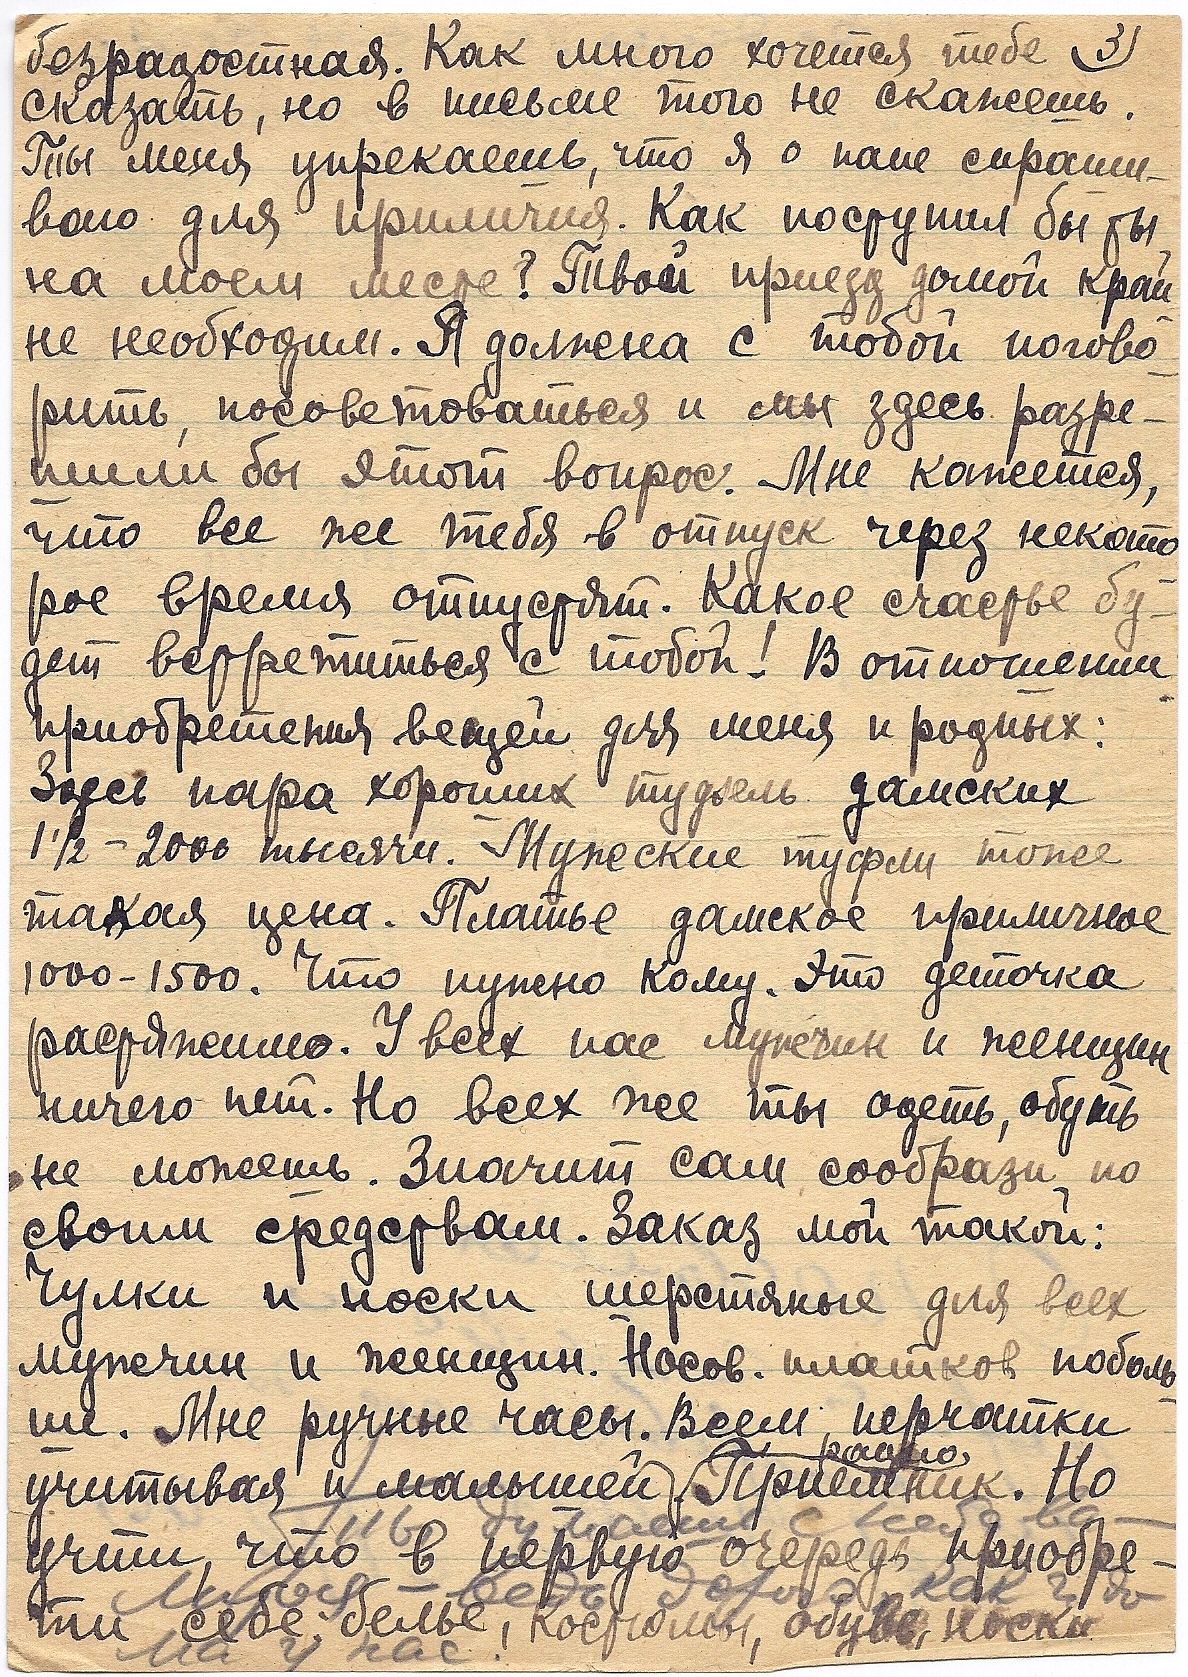 безрадостная. Как много хочется тебе 3)
сказать, но в письме того не скажешь.
Ты меня упрекаешь, что я о папе спраши-
ваю для приличия. Как поступил бы ты
на моем месте? Твой приезд домой край
не необходим. Я должена с тобой погово
рить, посоветоваться и мы здесь разре-
шили бы этот вопрос. Мне кажется,
что все же тебя в отпуск через некото
рое время отпустят. Какое счастье бу-
дет встретиться с тобой! В отношении
приобретения вещей для меня и родных:
Здесь пара хороших туфель дамских
1 1/2 – 2000 тысячи. Мужские туфли тоже
такая цена. Платье дамское приличное
1000 – 1500. Что нужно кому. Это деточка
растяжимо. У всех нас мужчин и женщин
ничего нет. Но всех же ты одеть, обуть
не можешь. Значит сам сообрази по
своим средствам. Заказ мой такой:
Чулки и носки шерстяные для всех
мужчин и женщин. Носов. платков поболь
ше. Мне ручные часы. Всем перчатки
учитывая и малышей (радио
Приемник. Но
учти, что в первую очередь приобре-
ти себе: белье, костюмы, обувь, носки
ма у нас.